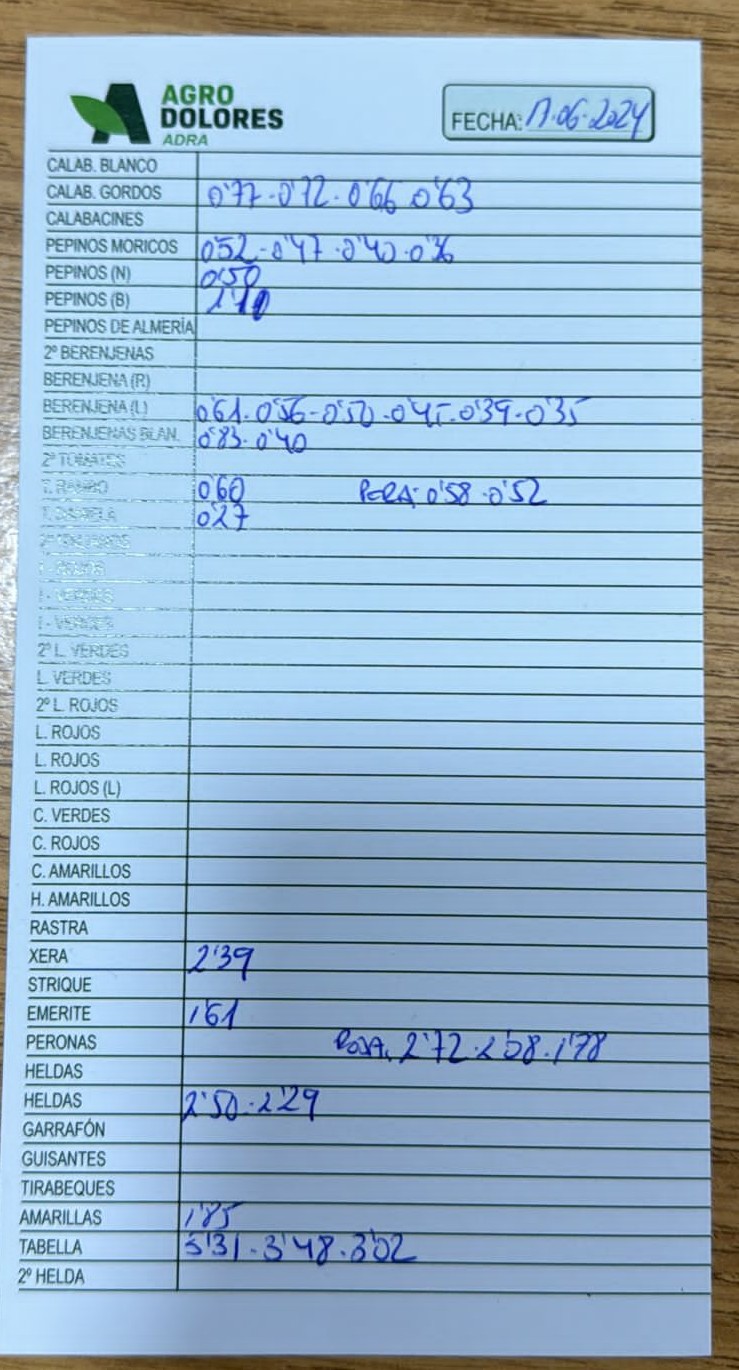 AGRO
DOLORES
ADRA
FECHA: 17.06.2024
CALAB. BLANCO
CALAB. GORDOS 0'77-0'72.0'66 0'63
CALABACINES
PEPINOS MORICOS 0'52-0'47.0'40.0'36
PEPINOS (N) 0'50
PEPINOS (B)
PEPINOS DE ALMERÍA
2º BERENJENAS
BERENJENA (R)
BERENJENA (L) 0'61.0'56-0'50.0'45.0'39.0'35
BERENJENAS BLAN. 0'83.0'40
2º TOMATES
T. RAMBO 0'60 PERA: 0'58.0'52
T. DANIELA 0'27
2º L. VERDES
L. VERDES
2º L. ROJOS
L. ROJOS
L. ROJOS
L. ROJOS (L)
C. VERDES
C. ROJOS
C. AMARILLOS
H. AMARILLOS
RASTRA
XERA 2'39
STRIQUE
EMERITE 1'61
PERONAS ROJA. 2'72.2'08.1'78
HELDAS
HELDAS 2'50.2'29
GARRAFÓN
GUISANTES
TIRABEQUES
AMARILLAS 1'85
TABELLA 3'48.3'02
2º HELDA